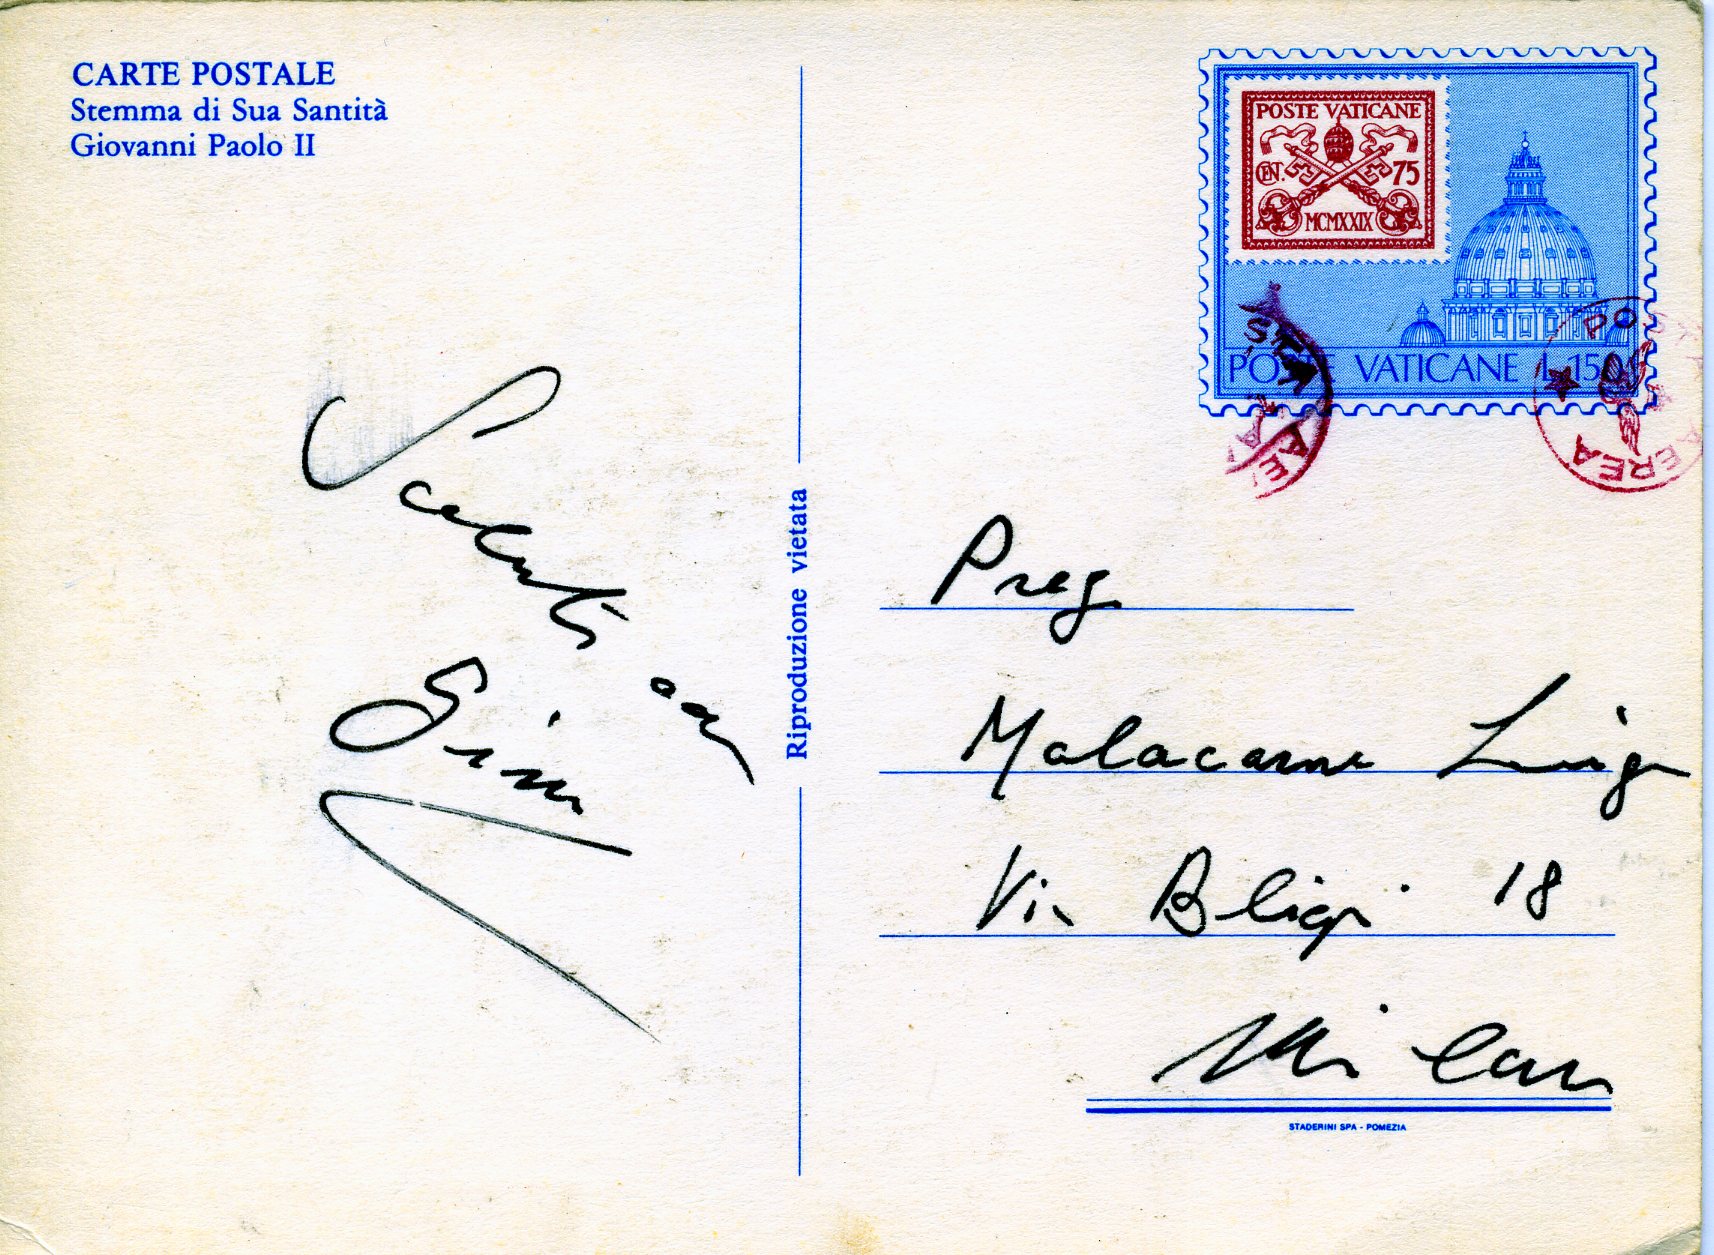 CARTE POSTALE
Stemma di Sua Santità
Giovanni Paolo II
POSTE VATICANE
CENT. 75
MCMXXIX
POSTE VATICANE L. 150
POSTA AEREA
Riproduzione vietata
Saluti
Preg
Malacarne Luigi
Via Bligi 18
Milano
STADERINI SPA - POMEZIA